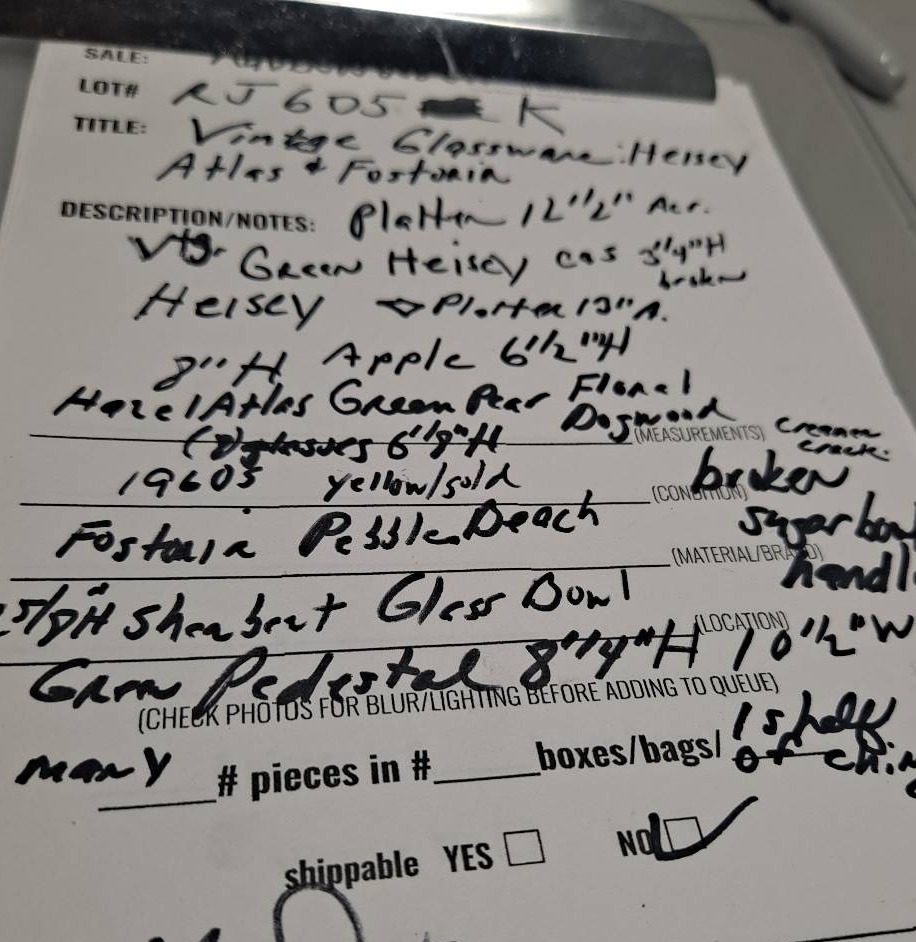 SALE:
LOT# RJ 605 K
TITLE: Vintge Glassware: Heisey
Atlas & Fostoria
DESCRIPTION/NOTES: Platter 12 1/2" Acr.
Vtg. Green Heisey cas 3 1/4"H
broken
Heisey Platter 13" A.
8" H Apple 6 1/2" H
Hazel Atlas Green Pear Floral
Dogwood
(MEASUREMENTS) creamer
crack.
(2) glasses 6 1/8" H
1960s yellow/gold
(CONDITION) broken
Fostoria Pebble Beach
sugar bow
(MATERIAL/BRAND) handl
5/8H Sherbert Glass Bowl
(LOCATION)
Green Pedestal 8 1/4"H 10 1/2"W
(CHECK PHOTOS FOR BLUR/LIGHTING BEFORE ADDING TO QUEUE)
many # pieces in # boxes/bags/ 1 shelf
of chin
shippable YES NO